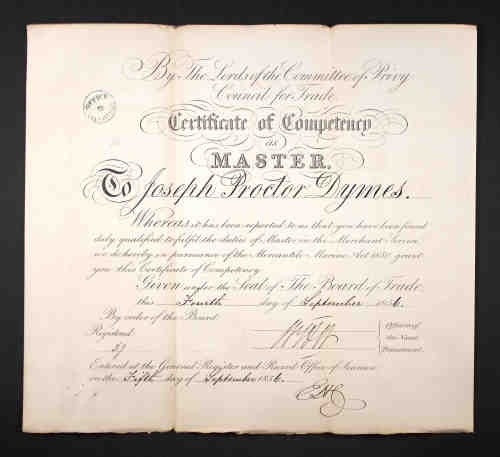 By The Lords of the Committee of Privy
Council for Trade
Certificate of Competency
as
MASTER.
To Joseph Proctor Dymes.
Whereas it has been reported to us that you have been found
duly qualified to fulfil the duties of Master in the Merchant Service
we do hereby in pursuance of the Mercantile Marine Act 1850 grant
you this Certificate of Competency
Given under the Seal of The Board of Trade
this Fourth day of September 1856.
By order of the Board
Officer of
the Naval
Department.
Registrar
Entered at the General Register and Record Office of Seamen
on the Fifth day of September 1856.